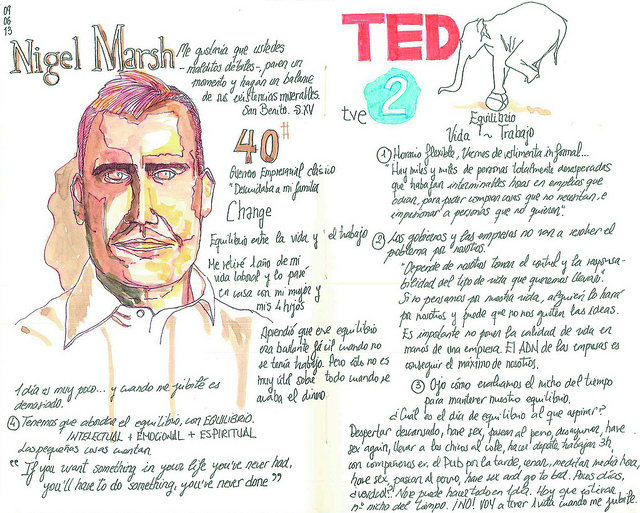 09
06
13
Nigel Marsh
Me gustaría que ustedes
-malditos débiles-, paren un
momento y hagan un balance
de sus existencias miserables.
San Benito. S.XV
40
Guerrero Empresarial clásico
"Descuidaba a mi familia
Change
Equilibrio entre la vida y el trabajo
Me retiré 1 año de mi
vida laboral y lo pasé
en casa con mi mujer y
mis 4 hijos
Aprendió que ese equilibrio
era bastante fácil cuando no
se tenía trabajo. Pero esto no es
muy útil sobre todo cuando se
acaba el dinero.
1 día es muy poco... y cuando me jubile es
demasiado.
4 Tenemos que abordar el equilibrio, con EQUILIBRIO.
INTELECTUAL + EMOCIONAL + ESPIRITUAL
Las pequeñas cosas cuentan
"If you want something in your life you've never had,
you'll have to do something, you've never done"
TED
tve 2
Equilibrio
Vida ~ Trabajo
1 Horario flexible, Viernes de vestimenta informal...
"Hay miles y miles de personas totalmente desesperadas
que trabajan interminables horas en empleos que
odian, para poder comprar cosas que no necesitan, e
impresionar a personas que no quieren".
2 Los gobiernos y las empresas no van a resolver el
problema por nosotros.
"Depende de nosotros tomar el control y la responsa-
bilidad del tipo de vida que queremos llevar".
Si no pensamos en nuestra vida, alguien lo hará
por nosotros y puede que no nos gusten las ideas.
Es importante no poner la calidad de vida en
manos de una empresa. El ADN de las empresas es
conseguir el máximo de nosotros.
3 Ojo cómo evaluamos el nicho del tiempo
para mantener nuestro equilibrio.
¿Cuál es el día de equilibrio al que aspirar?
Despertar descansado, have sex, pasear al perro, desayunar, have
sex again, llevar a los chicos al cole, hacer deporte, trabajar 3h,
con compañeros en el Pub por la tarde, cenar, meditar media hora,
have sex, pasear al perro, have sex and go to bed. Pocos días,
¿verdad? No se puede hacer todo en 1 día. Hay que estirar
nicho del tiempo. ¡NO! VOY a tener 1 vida cuando me jubile.